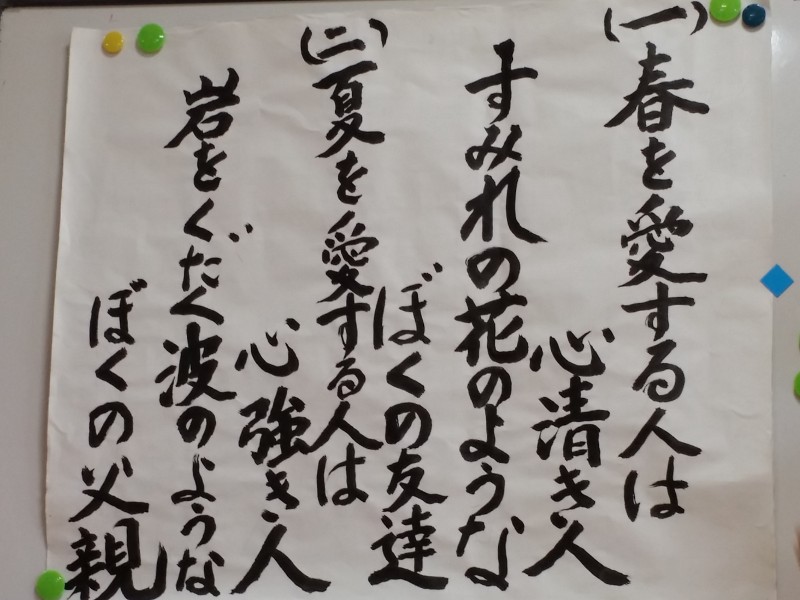 (一)春を愛する人は
心清き人
すみれの花のような
ぼくの友達
(二)夏を愛する人は
心強き人
岩をくだく波のような
ぼくの父親